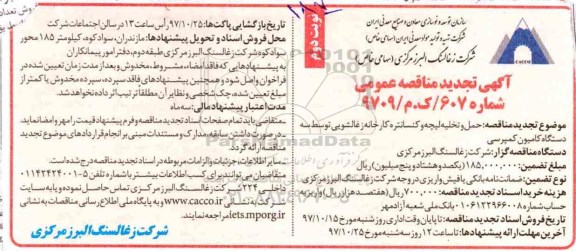 نوبت دوم
سازمان توسعه و نوسازی معادن و صنایع معدنی ایران
شرکت تهیه و تولید مواد معدنی ایران (سهامی خاص)
شرکت زغالسنگ البرز مرکزی (سهامی خاص)
CACCO
آگهی تجدید مناقصه عمومی
شماره ۶۰۷/ک.م/۹۷۰۹
موضوع تجدید مناقصه: حمل و تخلیه لیچه و کنسانتره کارخانه زغالشویی توسط سه
دستگاه کامیون کمپرسی
دستگاه مناقصه گزار: شرکت زغالسنگ البرز مرکزی
مبلغ تضمین: ۱۸۵.۰۰۰.۰۰۰ (یکصد و هشتاد و پنج میلیون) ریال
نوع تضمین: ضمانتنامه بانکی یا فیش واریزی در وجه شرکت زغالسنگ البرز مرکزی
هزینه خرید اسناد تجدید مناقصه: ۷۰۰.۰۰۰ ریال (هفتصد هزار ریال) واریز به
حساب شماره ۰۱۰۶۱۲۳۹۶۶۰۰۸ بانک ملی شعبه آزادمهر
تاریخ فروش اسناد تجدید مناقصه: تا پایان وقت اداری روز شنبه مورخ ۹۷/۱۰/۱۵
آخرین مهلت ارائه پیشنهادها: تا ساعت ۱۲ روز سه شنبه مورخ ۹۷/۱۰/۲۵
تاریخ بازگشایی پاکت ها: ۹۷/۱۰/۲۵ رأس ساعت ۱۳ در سالن اجتماعات شرکت
محل فروش اسناد و تحویل پیشنهادها: مازندران، سوادکوه، کیلومتر ۱۸۵ محور
سوادکوه شرکت زغالسنگ البرز مرکزی طبقه دوم، دفتر امور پیمانکاران
به پیشنهادهایی که فاقد امضاء، مشروط، مخدوش و بعد از مدت زمان تعیین شده در
فراخوان واصل شود و همچنین پیشنهادهای فاقد سپرده، سپرده مخدوش یا کمتر از
مبلغ تعیین شده، چک شخصی و نظایر آن مطلقا ترتیب اثر داده نخواهد شد.
مدت اعتبار پیشنهاد مالی: سه ماه
متقاضی باید تمام صفحات اسناد تجدید مناقصه و فرم پیشنهاد قیمت را مهر و امضا نماید.
در صورت داشتن سابقه، مدارک و مستندات مبنی بر انجام قراردادهای موضوع تجدید
مناقصه ارائه گردد.
سایر اطلاعات، جزئیات و الزامات مربوطه در اسناد تجدید مناقصه درج شده است.
متقاضیان می توانند برای کسب اطلاعات بیشتر با شماره تلفن ۵-۰۱۱۴۲۴۲۴۰۰۱
داخلی ۲۲۴ شرکت زغالسنگ البرز مرکزی تماس حاصل نموده و یا به سایت
www.cacco.ir و یا به پایگاه ملی اطلاع رسانی مناقصات به نشانی
iets.mporg.ir مراجعه نمایند.
شرکت زغالسنگ البرز مرکزی